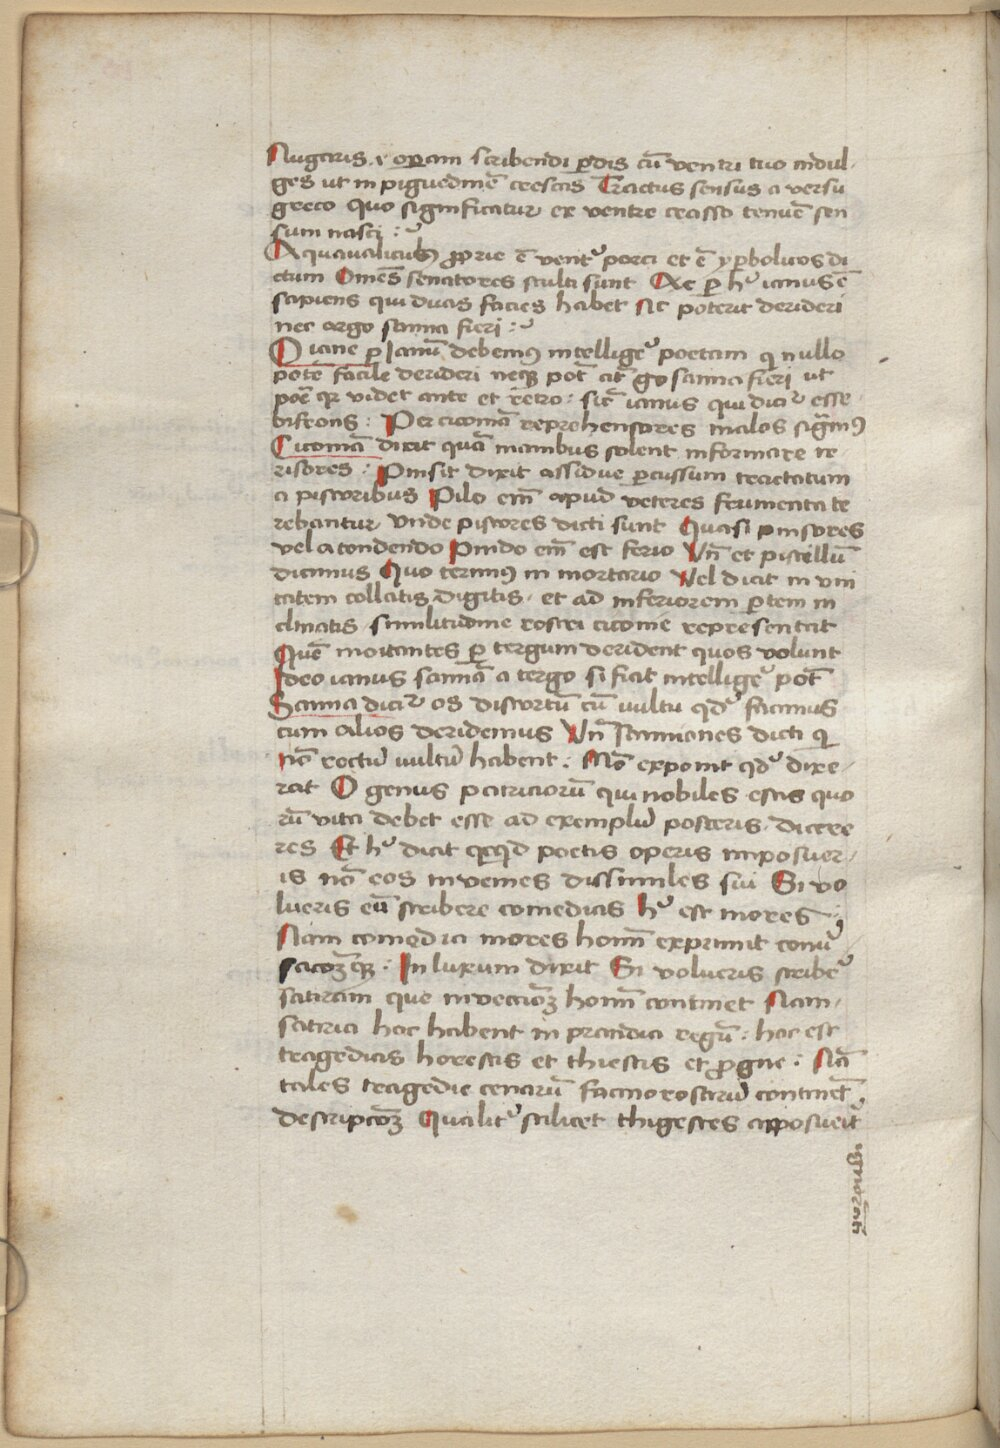 Nugaris .i. operam scribendi p̱dis cū ventri tuo indul-
ges ut in piguedinē crescas Tractus sensus a versu
greco quo significatur ex ventre crasso tenuē sen
sum nasci :
Aqualiculus p̱prie ē vent᷒ porci et ē yp̱bolicos di
ctum Omēs senatores stulti sunt Ac p̱ h᷒ ianus ē
sapiens qui duas facies habet sic poterit derideri
nec a tergo sanna fieri :
O iane p̱ Ianū debemꝰ intellige᷒ poetam q nullo
potē facile derideri neqꝫ pot̄ a t̄go sanna fieri ut
poē qꝛ videt ante et retro : sic̄ ianus qui dici᷒ esse
bifrons : Per ciconiā reprehensores malos sigm̄ꝰ
Ciconiā dixit quā manibus solent informare ir-
risores : Pinsit dixit assidue p̱cussum tractatum
a pistoribus Pilo em̄ apud veteres frumenta te
rebantur Vnde pistores dicti sunt Quasi pinsores
vel a tondendo Pindo em̄ est ferio Vn̄ et pistillū
dicimus Quo terimꝰ in mortario Vel dicit in vni
tatem collatis digitis . et ad inferiorem p̱tem in
clinatis . similitudine rostri ciconie representat
Quē motantes p̱ tergum derident quos volunt
Ideo ianus sannā a tergo si fiat intellige᷒ pot̄
Sanna dici᷒ os distortū cū vultu qd᷒ facimus
cum alios deridemus Vn̄ Sanniones dicti q
nō rectū vultū habent : Nō exponit qd᷒ dixe-
rat O genus patriciorū qui nobiles estis quo
rū vita debet esse ad exemplū posteris . dicere
res Et h᷒ dicit qꝫqd poetis operis imposuer-
is nō eos invenies dissimiles sui Si vo
lueris eū scribere comedias h᷒ est mores
Nam comedia mores homī exprimit
In luxum dixit Si volueris scribe᷒
satiram que invectioꝫ homī continet Nam
satirici hoc habent in prandia regū : hoc est
tragedias horestis et thiestis et p̱gne : Nā
tales tragedie cenarū facinorosarū continēt
descripcōꝫ Qualit᷒ scilicet thigestes apposuerit